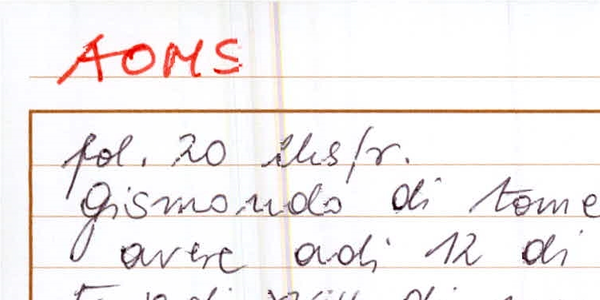 AOMS
fol. 20 ihs/r.
Gismondo di tome
avere adi 12 di